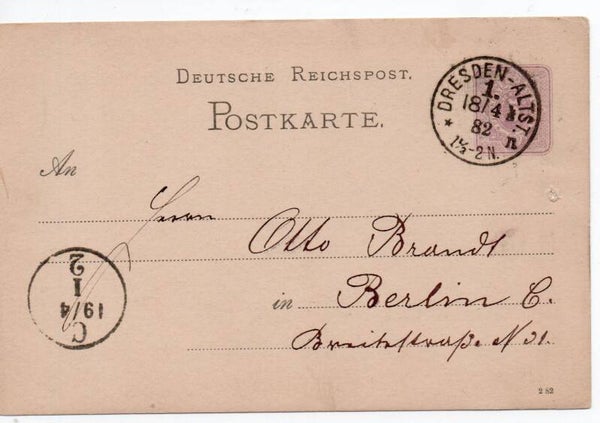 DEUTSCHE REICHSPOST.
POSTKARTE.
* DRESDEN-ALTST. n
1.
18/4
82
1½-2N.
An
Herrn
Otto Brandt
in Berlin C.
Breitestraße N
C
19/4
1
2
2 82